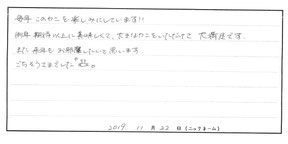 毎年 このやこを楽しみにしています!!
例年 期待以上に美味しくて、大きなやこをいただけて 大満足です。
また 来年も お邪魔したいと思います。
ごちそうさまでした。
2019 11 月 22 日 (ニックネーム)